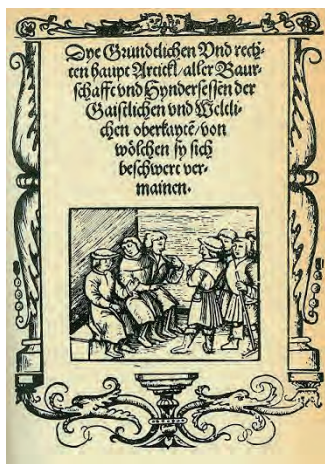 Dye Grundtlichen Vnd rech-
ten haupt Artickl/aller Baur-
schafft vnd Hyndersessen der
Gaistlichen vnd Weltli-
chen oberkaytē/von
wölchen sy sich
beschwert ver-
mainen.